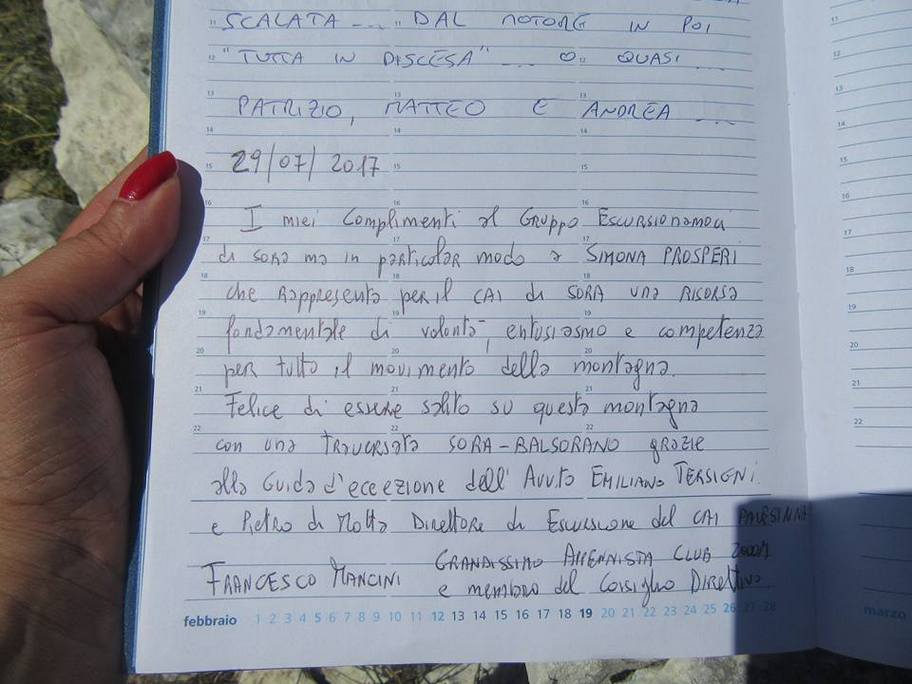 SCALATA ... DAL MOTORE IN POI
"TUTTA IN DISCESA" ... O QUASI ...
PATRIZIO, MATTEO E ANDREA ...
29/07/2017
I miei complimenti al Gruppo ESCURSIONAMOCI
di SORA ma in particolar modo a SIMONA PROSPERI
che rappresenta per il CAI di SORA una RISORSA
fondamentale di volontà, entusiasmo e competenza
per tutto il movimento della montagna.
Felice di essere salito su questa montagna
con una TRAVERSATA SORA-BALSORANO grazie
alla Guida d'eccezione dell'Avv.to EMILIANO TERSIGNI.
e Pietro di Motta Direttore di Escursione del CAI
FRANCESCO MANCINI GRANDISSIMO APPENNISTA CLUB 2000M
e membro del Consiglio Direttivo.
febbraio 1 2 3 4 5 6 7 8 9 10 11 12 13 14 15 16 17 18 19 20 21 22 23 24 25 26 27 28
marzo